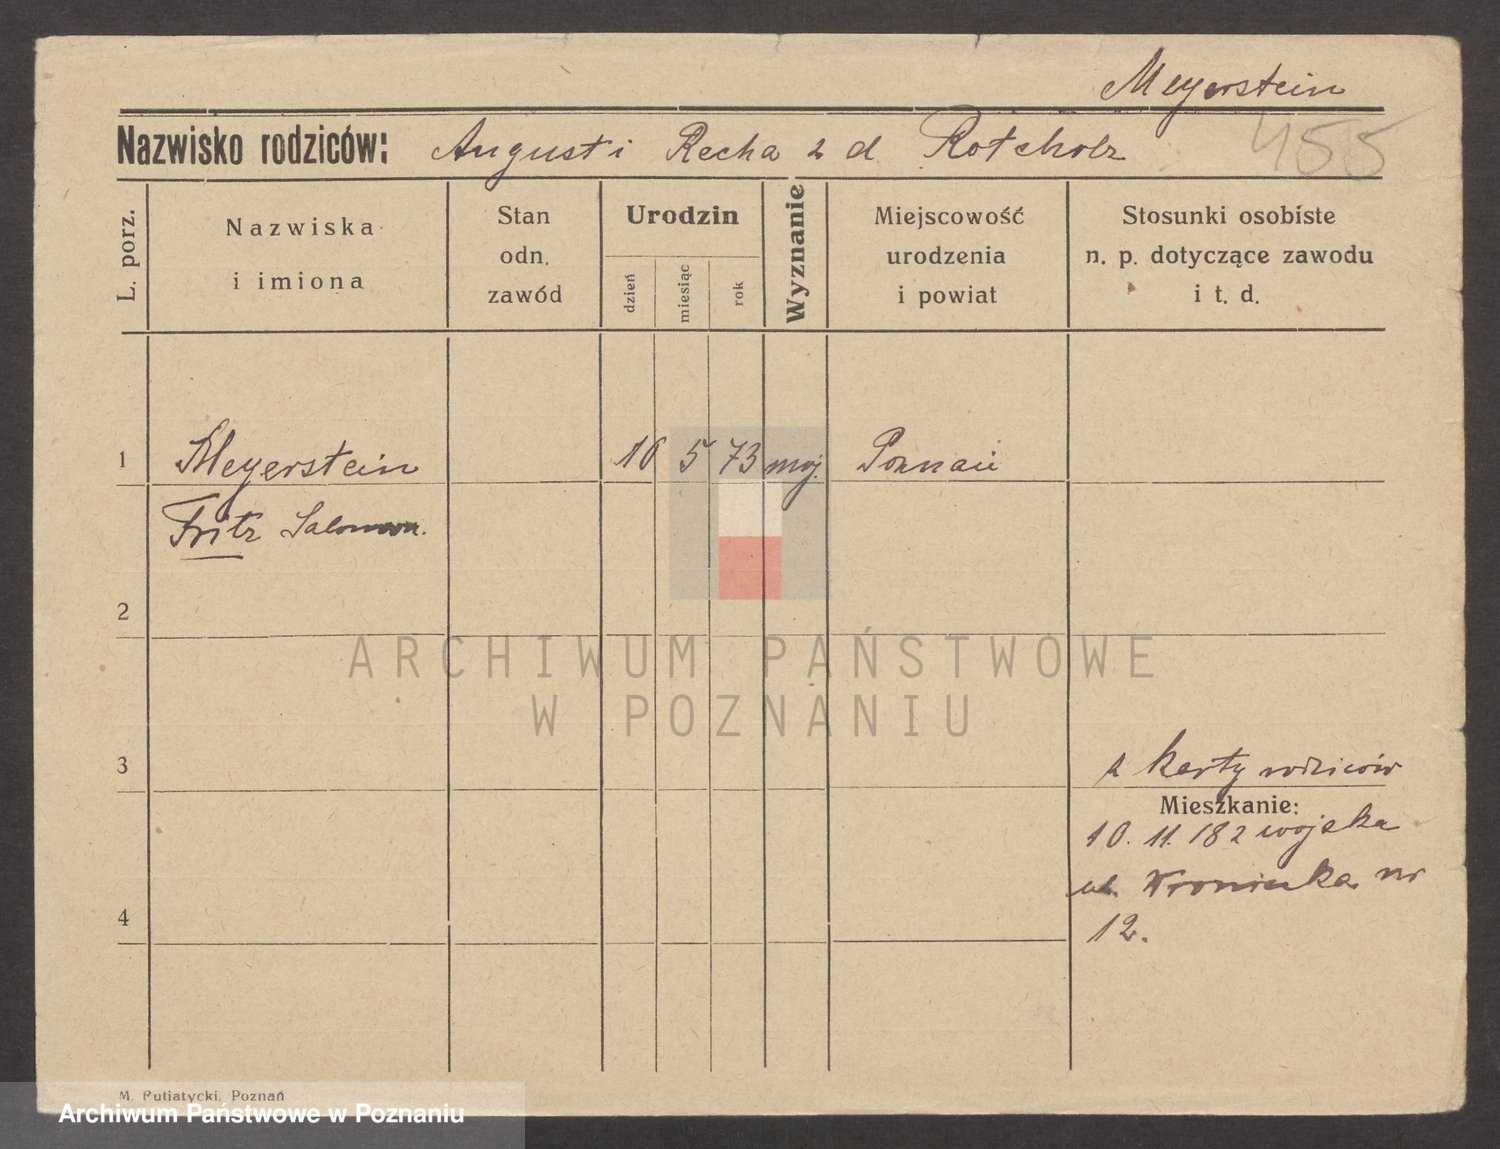 Meyerstein
Nazwisko rodziców: August i Recha z d. Rotcholz
455
L. porz.
Nazwiska i imiona
Stan odn. zawód
Urodzin
dzień
miesiąc
rok
Wyznanie
Miejscowość urodzenia i powiat
Stosunki osobiste n. p. dotyczące zawodu i t. d.
1 Meyerstein 10 5 73 moj. Poznań
Fritz Salomon.
2
ARCHIWUM PAŃSTWOWE
W POZNANIU
3
z karty rodziców
Mieszkanie:
10. 11. z wojska
ul. Wroniecka nr
4
12.
M. Putiatycki, Poznań
Archiwum Państwowe w Poznaniu